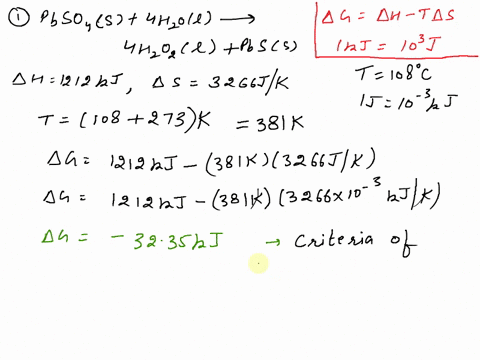 ① PbSO₄(s) + 4H₂O(l) ⟶
4H₂O₂(l) + PbS(s)
ΔG = ΔH - TΔS
1kJ = 10³J
ΔH = 1212kJ, ΔS = 3266J/K
T = 108°C
1J = 10⁻³kJ
T = (108 + 273)K = 381K
ΔG = 1212kJ - (381K)(3266J/K)
ΔG = 1212kJ - (381K)(3266×10⁻³ kJ/K)
ΔG = - 32.35kJ → Criteria of